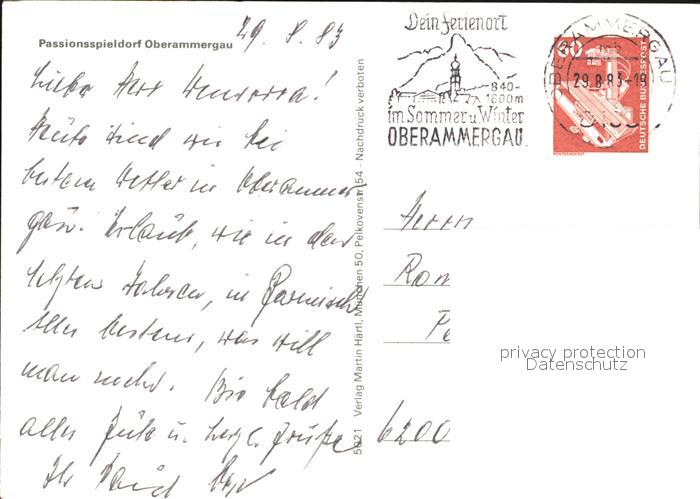 Passionsspieldorf Oberammergau
29. 8. 83
Lieber Herr
Heute sind wir bei
bestem Wetter in Oberammer-
gau. Urlaub, wie in den
letzten Jahren, in Garmisch.
Alles bestens, was will
man mehr. Bis bald
alles Gute u. herzl. Grüße
Ihr
5021 Verlag Martin Hartl, München 50, Pelkovenstr. 54 - Nachdruck verboten
Dein Ferienort
840-
1600m
im Sommer u. Winter
OBERAMMERGAU
OBERAMMERGAU
29.8.83-19
60
DEUTSCHE BUNDESPOST
Herrn
Ron
Pe
6200
privacy protection
Datenschutz